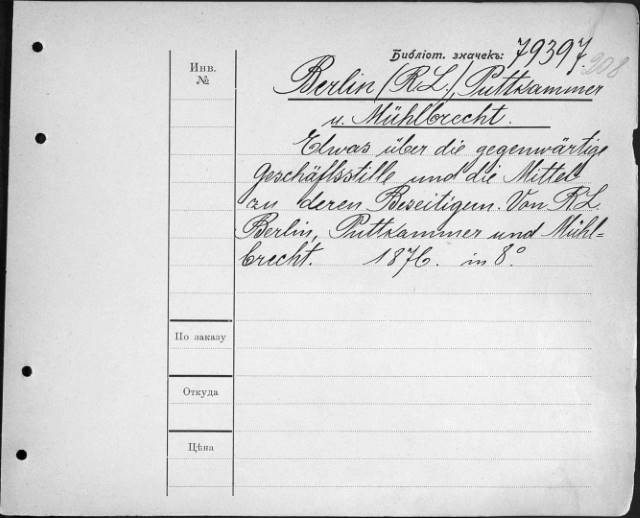 Инв.
№
Библіот. значекъ: 79397
208
Berlin (R.L.), Puttkammer
u. Mühlbrecht.
Etwas über die gegenwärtige
Geschäftsstille und die Mittel
zu deren Beseitigun. Von R.L.
Berlin, Puttkammer und Mühl=
brecht. 1876. in 8°
По заказу
Откуда
Цѣна